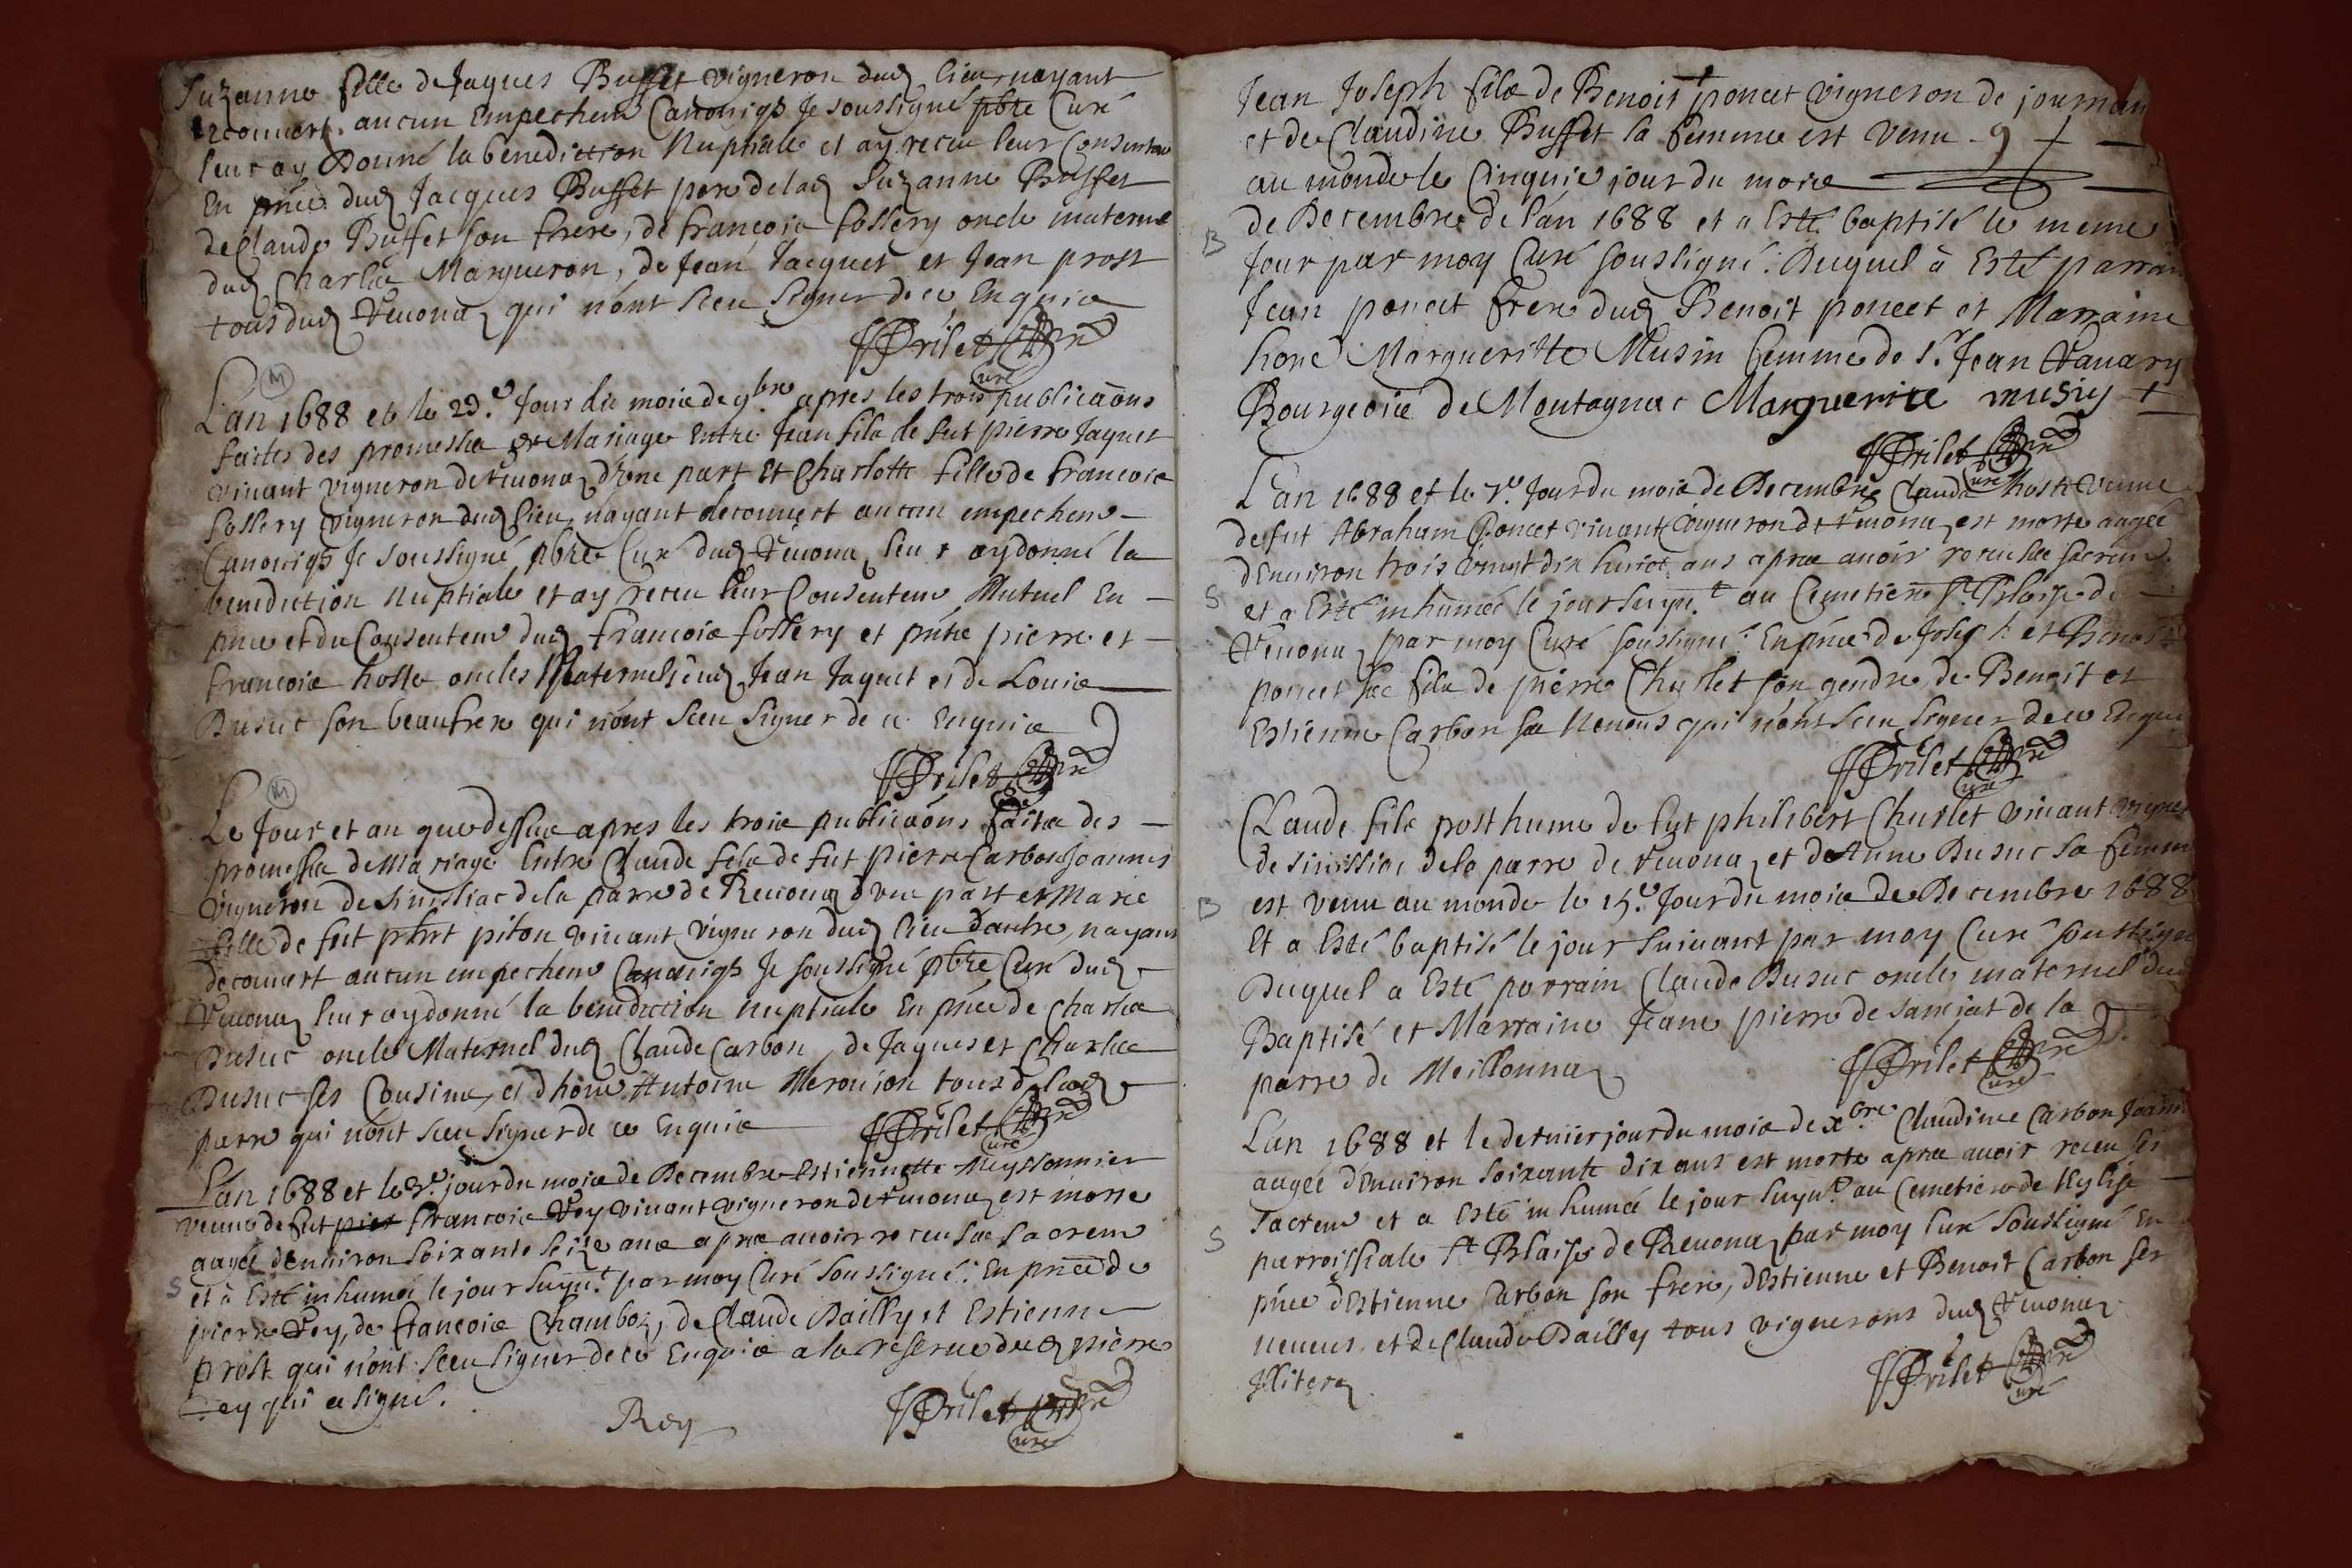 Suzanne fille de Jaques Buffet vigneron dud lieu nayant
decouvert aucun Empechem Canoniqs Je soussigné pbre Curé
leur ay Donné la benediction Nuptiale et ay receu leur Consentem
En pnce dud Jacques Buffet pere de lad Suzanne Buffet
de Claude Buffet son frere, de françois fossery oncle maternel
dud Charles Margueron, de Jean Jacquet et Jean prost
tous dud Revona qui nont sceu signer de ce Enquis
Prilet pbre
Curé
M
Lan 1688 et le 29.e Jour du mois de 9.bre apres les trois publicaons
faites des promesses de Mariage Entre Jean fils de fut pierre Jaquet
vivant vigneron de Revona d'une part Et Charlotte fille de francois
fossery vigneron dud lieu, nayant decouvert aucun empechem
Canoniqs Je soussigné pbre Curé dud Revona leur ay donné la
benediction Nuptiale et ay receu leur Consentem Mutuel En
pnce et du Consentem dud francois fossery et pntes pierre et
francois hoste oncles Maternels dud Jean Jaquet et de Louis
Dusuc son beaufrere qui nont sceu signer de ce Enquis
Prilet pbre
Curé
M
Le Jour et an que dessus apres les trois publicaons faites des
promesses de Mariage Entre Claude fils de fut pierre Carbon Joannes
vigneron de Sinissiac de la parre de Revona d'une part et Marie
fille de fut phrt piton vivant vigneron dud lieu dautre, nayant
decouvert aucun empechem Canoniqs Je soussigné pbre Curé dud
Revona leur ay donné la benediction Nuptiale En pnce de Charles
Dusuc oncle Maternel dud Claude Carbon, de Jaques et Charles
Dusuc ses Cousins, et d'hone Antoine tous de lad
parre qui nont sceu signer de ce Enquis
Prilet pbre
Curé
Lan 1688 et le 3.e jour du mois de Decembre Estiennette Meyssonnier
veuve de fut francois Rey vivant vigneron de Revona est morte
aagée denviron soixante seize ans apres avoir receu ses sacrem
S
et à Esté inhumée le jour suyvt. par moy Curé soussigné. En pnce de
pierre Rey, de francois Chambon, de Claude Dailly et Estienne
prost qui nont sceu signer de ce Enquis a la reserve dud pierre
Rey qui a signé.
Rey
Prilet pbre
Curé
Jean Joseph fils de Benoit poncet vigneron de journan
et de Claudine Buffet sa femme est venu
au monde le Cinquie jour du mois
de Decembre de lan 1688 et a Esté baptisé le meme
B
Jour par moy Curé soussigné. Duquel à Esté parrain
Jean poncet frere dud Benoit poncet et Marraine
hone Margueritte Musin femme de Sr. Jean Ravary
Bourgeois de Montagnac Marguerite musiy +
Prilet pbre
Curé
Lan 1688 et le 7.e Jour du mois de Decembre Claude hoste veuve
de fut Abraham Poncet vivant vigneron de Revona est morte aagée
denviron trois vingt dix huict ans apres avoir receu ses sacrem
S
et a Esté inhumée le jour suyvt. au Cemetiere St. Blaise de
Revona par moy Curé soussigné. En pnce de Joseph et Benoit
poncet ses fils de pierre Churlet son gendre de Benoit et
Estienne Carbon ses Neveus qui nont sceu signer de ce Enquis
Prilet pbre
Curé
Claude fils posthume de fut philibert Churlet vivant vigner
de Sinissiac de la parre de Revona, et de Anne Dusuc sa femme
B
est venu au monde le 15.e Jour du mois de Decembre 1688
Et a Esté baptisé le jour suivant par moy Curé soussigné
Duquel a Esté parrain Claude Dusuc oncle maternel dud
Baptisé et Marraine Jeane pierre de Sanciat de la
parre de Meillonna
Prilet pbre
Curé
Lan 1688 et le dernier jour du mois de x.bre Claudine Carbon Joann
aagée denviron soixante dix ans est morte apres avoir receu ses
sacrem et a Esté inhumée le jour suyvt. au Cemetiere de lEglise
S
parroissiale St Blaise de Revona par moy Curé soussigné En
pnce dEstienne Carbon son frere, dEstienne et Benoit Carbon ses
neveus, et de Claude Dailly tous vignerons dud Revona
Illiterez
Prilet pbre
Curé